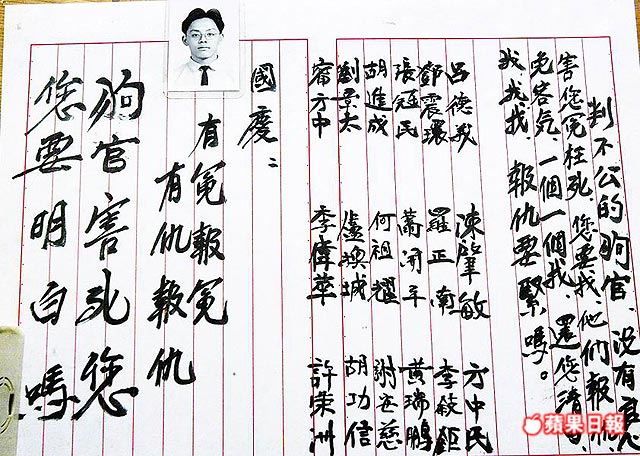 判不公的狗官、没有良
害您冤枉死、您要找、他們報仇
免客气、一個一個找、還您清白、
找、找、找、報仇要緊嗎。
呂德義 陳肇敏 方中民
鄧震環 羅正南 李毓鉅
張冠民 蕭開平 黃瑞鵬
胡進成 何祖耀 謝念慈
劉景太 盧換城 胡功信
甯方中 李偉華 許榮洲
國慶：
有冤報冤
有仇報仇
狗官害死您
您要明白嗎
蘋果日報